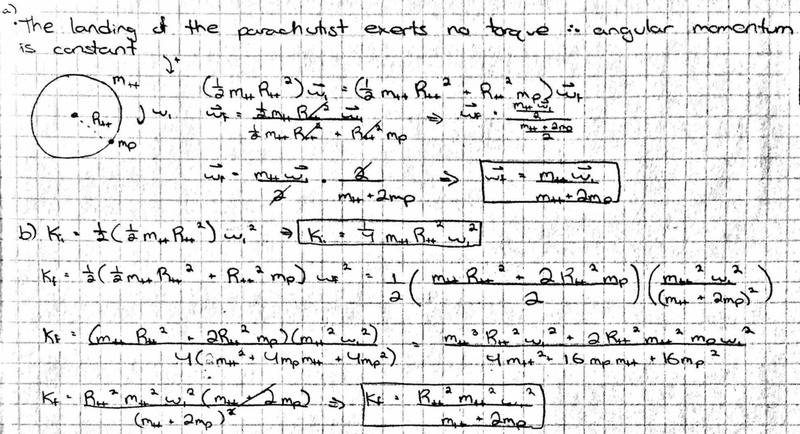 a)
• The landing of the parachutist exerts no torque ∴ angular momentum
is constant
m_tt
R_tt
ω_i
m_p
+
(½ m_tt R_tt²) ω⃗_i = (½ m_tt R_tt² + R_tt² m_p) ω⃗_f
ω⃗_f = (½ m_tt R_tt² ω⃗_i) / (½ m_tt R_tt² + R_tt² m_p) ⇒ ω⃗_f = (m_tt ω⃗_i / 2) / ((m_tt + 2m_p) / 2)
ω⃗_f = (m_tt ω⃗_i / 2) · (2 / (m_tt + 2m_p)) ⇒ ω⃗_f = m_tt ω⃗_i / (m_tt + 2m_p)
b) K_i = ½ (½ m_tt R_tt²) ω_i² ⇒ K_i = ¼ m_tt R_tt² ω_i²
K_f = ½ (½ m_tt R_tt² + R_tt² m_p) ω_f² = 1/2 ((m_tt R_tt² + 2R_tt² m_p) / 2) (m_tt² ω_i² / (m_tt + 2m_p)²)
K_f = (m_tt R_tt² + 2R_tt² m_p)(m_tt² ω_i²) / 4(m_tt² + 4m_p m_tt + 4m_p²) = (m_tt³ R_tt² ω_i² + 2R_tt² m_tt² m_p ω_i²) / (4m_tt² + 16m_p m_tt + 16m_p²)
K_f = R_tt² m_tt² ω_i² (m_tt + 2m_p) / (m_tt + 2m_p)² ⇒ K_f = R_tt² m_tt² ω_i² / (m_tt + 2m_p)